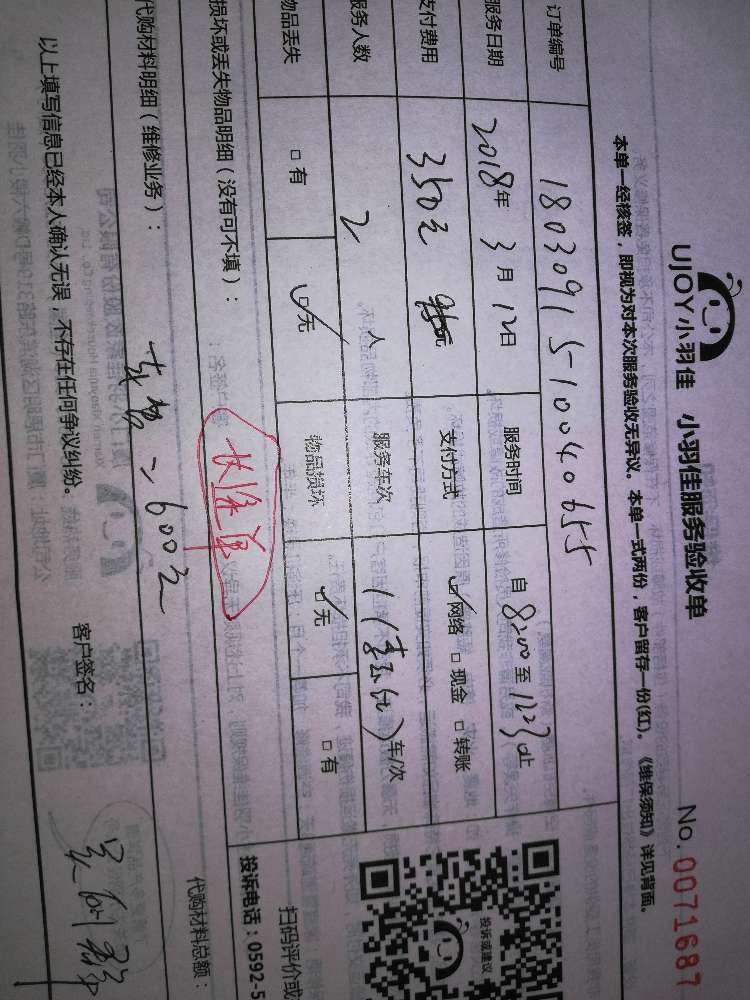 UJOY小羽佳 小羽佳服务验收单 No.0071687
本单一经核签，即视为对本次服务验收无异议。本单一式两份，客户留存一份(红)。《维保须知》详见背面。
订单编号 1803091510040655
服务日期 2018年3月12日 服务时间 自8:00至11:23止
支付费用 350元 支付方式 ☑网络 □现金 □转账
服务人数 2人 服务车次 1 车/次
物品丢失 □有 ☑无 物品损坏 ☑无 □有
损坏或丢失物品明细（没有可不填）：
扫码评价或
投诉或建议
投诉电话：0592-5
代购材料明细（维修业务）：
代购材料总额：
600元
以上填写信息已经本人确认无误，不存在任何争议纠纷。 客户签名：